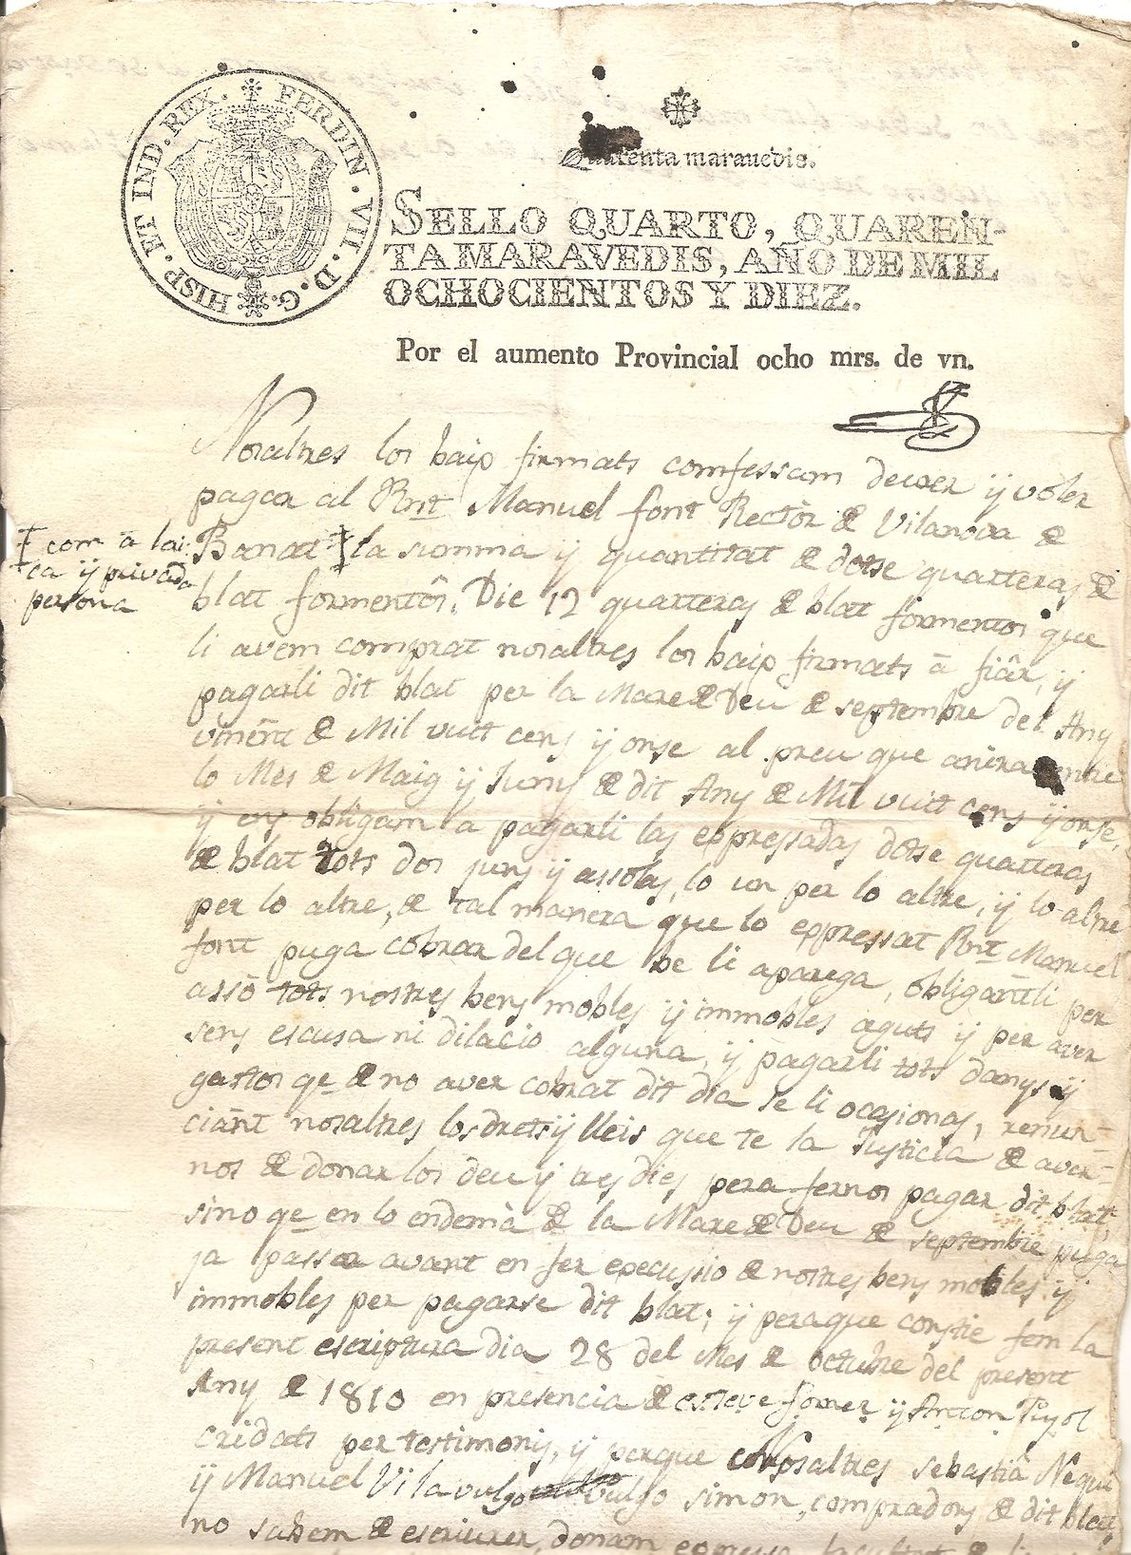 FERDIN · VII · D · G · HISP · ET IND · REX ·
Quarenta maravedis.
SELLO QUARTO, QUAREN-
TA MARAVEDIS, AÑO DE MIL
OCHOCIENTOS Y DIEZ.
Por el aumento Provincial ocho mrs. de vn.
Nosaltres los baix firmats comfessam deurer ÿ voler
pagar al Rnt. Manuel font Rectòr de Vilanova de
Banat ‡ la summa ÿ quantitat de dotse quarteras de
‡ com â lai-
ca ÿ privada
persona
blat formentôs. Die 12 quarteras de blat formentos que
li avem comprat nosaltres los baix firmats â fiâr, ÿ
pagarli dit blat per la Mare de Deu de septembre del Any
vinēnt de Mil vuit cens ÿ onse al preu que anira entre
lo Mes de Maig ÿ Juny de dit Any de Mil vuit cens ÿ onse,
ÿ ens obligam a pagarli las expressadas dotse quarteras
de blat tots dos juns ÿ assolas, lo un per lo altre, ÿ lo altre
per lo altre, de tal manera que lo expressat Rnt. Manuel
font puga cobrar del que be li aparega, obligantli per
assô tots nostres bens mobles ÿ immobles aguts ÿ per aver
sens escusa ni dilacio alguna, ÿ pagarli tots danys ÿ
gastos qe de no aver cobrat dit dia se li ocasionas, renun-
ciānt nosaltres los drets ÿ lleis que te la Justicia de aver-
nos de donar los deu ÿ tres dies pera fernos pagar dit blat,
sino qe en lo endemà de la Mare de Deu de septembre puga
ja passar avant en fer execussio de nostres bens mobles ÿ
immobles per pagarse dit blat; ÿ peraque constie fem la
present escriptura dia 28 del Mes de octubre del present
Any de 1810 en presencia de esteve ÿ Anton Pujol
cridats per testimonis, ÿ perque nosaltres sebastiâ
ÿ Manuel Vila vulgo vulgo simon, compradors de dit blat,
no sabem de escriurer, donam expressa facultat de